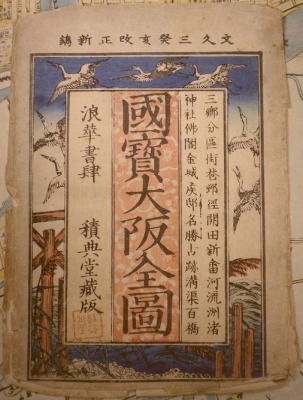 文久三癸亥改正新鐫
三郷分區街巷郵徑開田新畬河流洲渚
神社佛閣金城矦邸名勝古跡溝渠百橋
國寶大阪全圖
浪華書肆　積典堂藏版